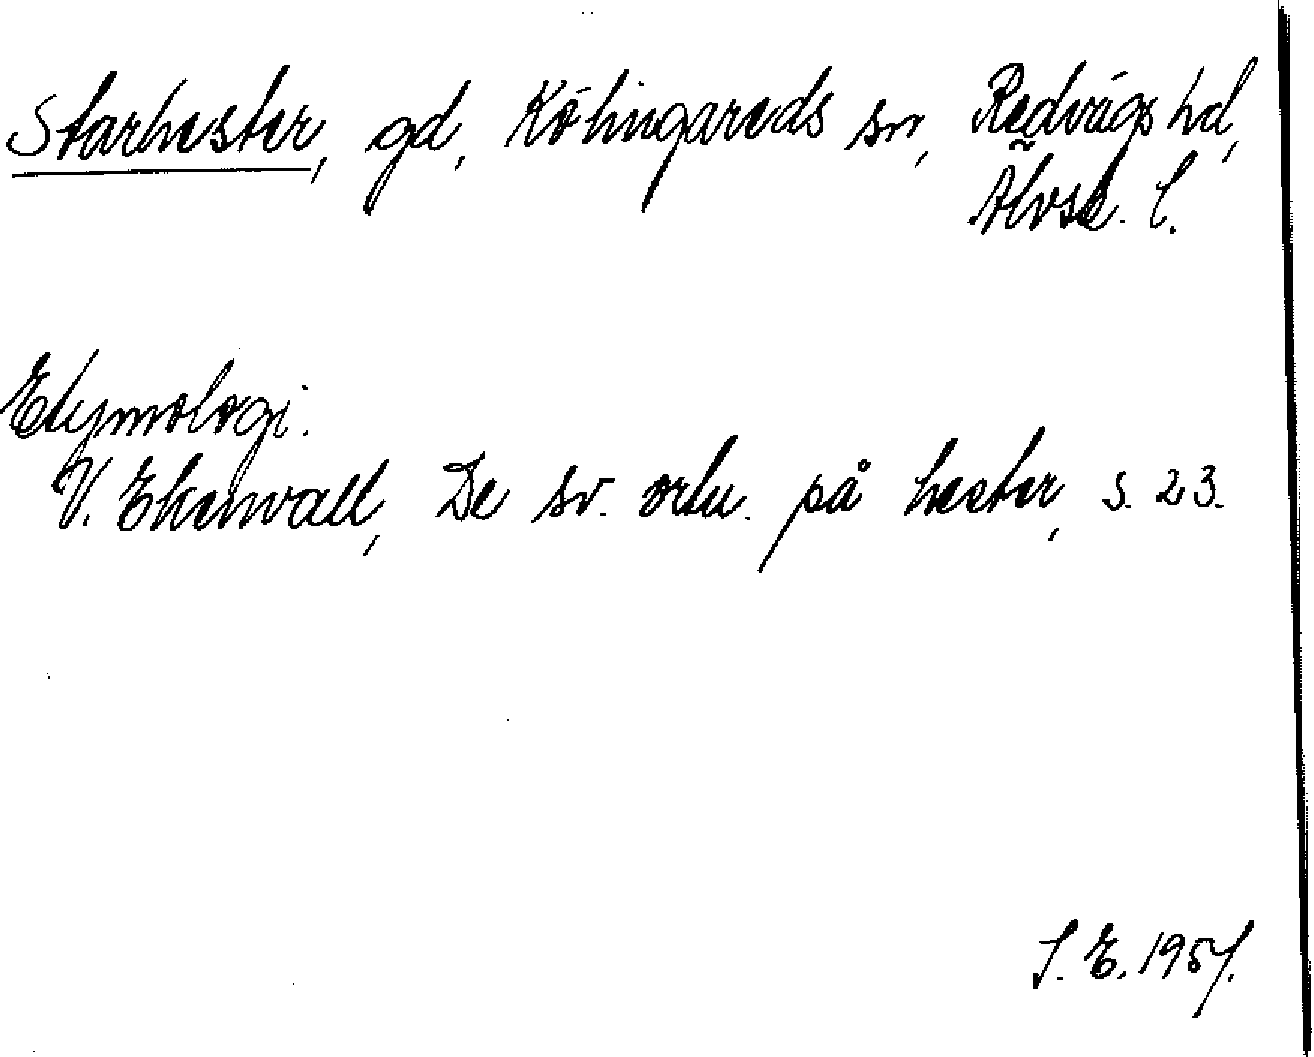 Starhester, gd, Kölingareds sn, Redvägs hd,
Älvsb. l.
Etymologi.
V. Ekenvall, De sv. ortn. på hester, s. 23.
S. E. 1957.